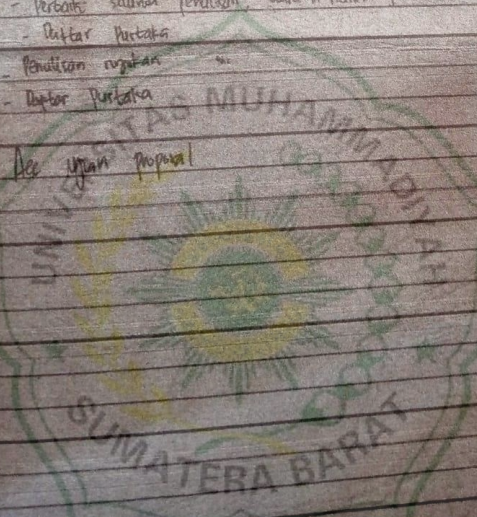 - Perbaiki
- Daftar Pustaka
- Penulisan rujukan
- Daftar Pustaka
Acc ujian proposal
UNIVERSITAS MUHAMMADIYAH
SUMATERA BARAT